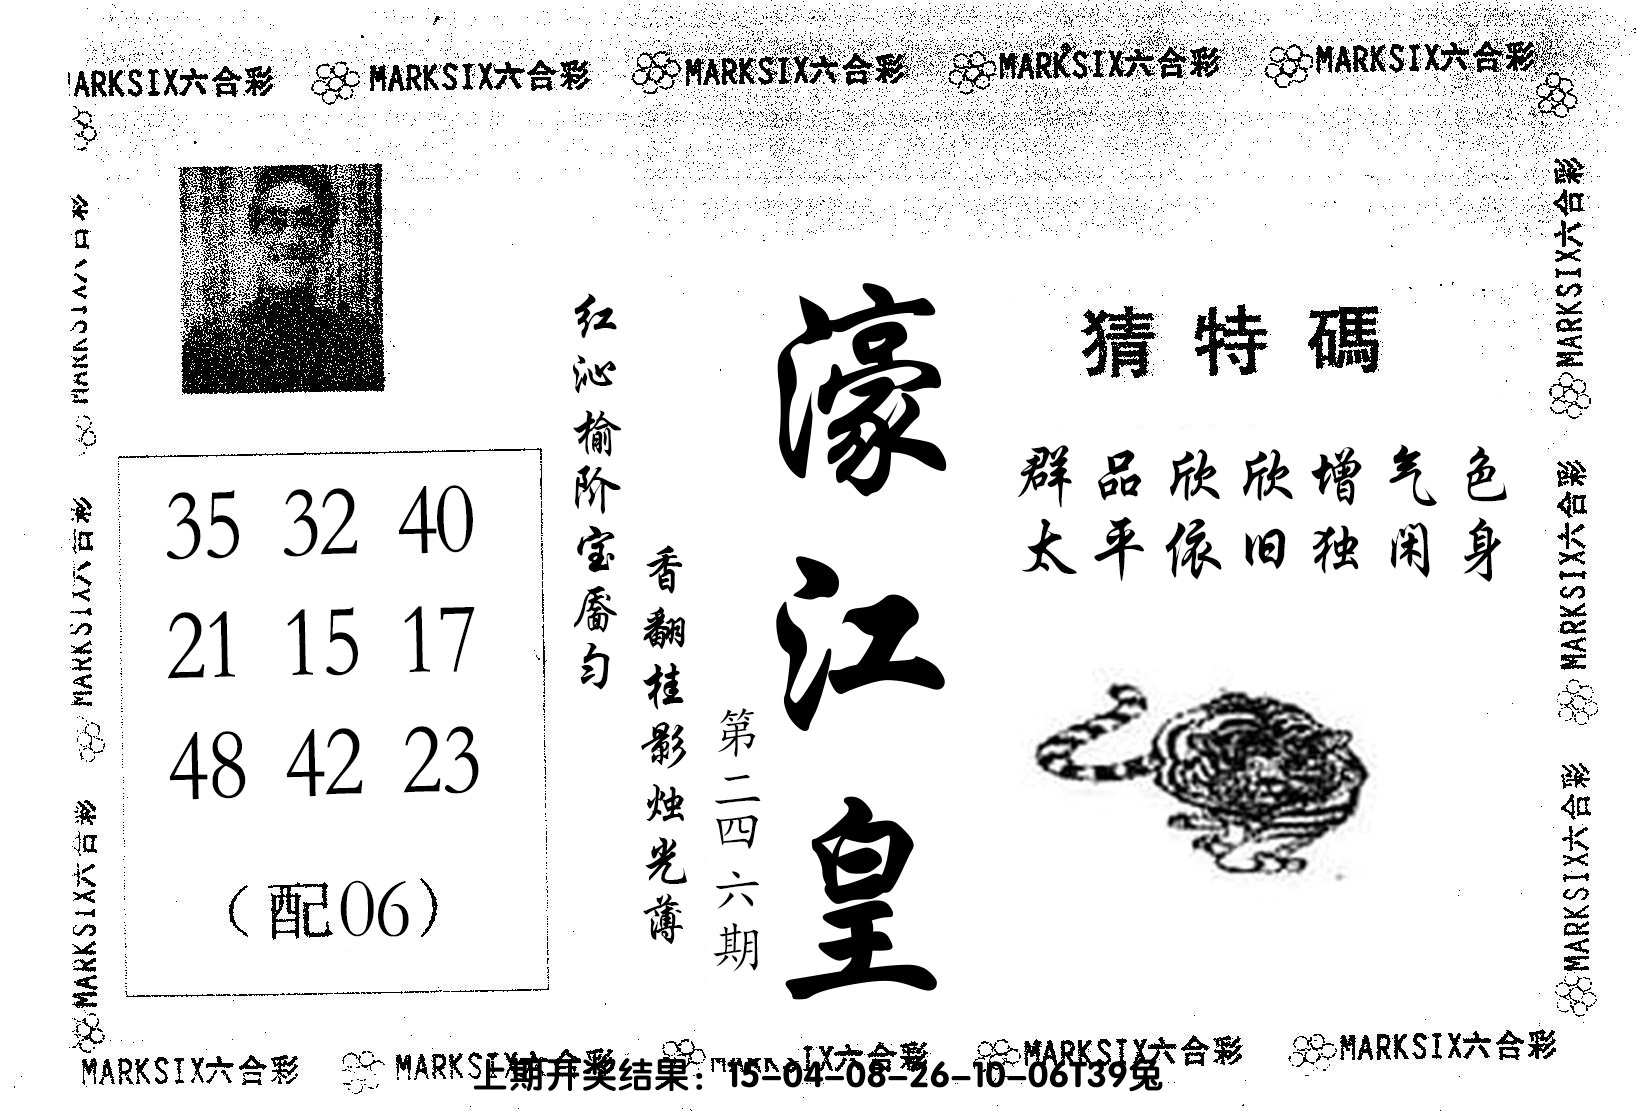 MARKSIX六合彩 MARKSIX六合彩 MARKSIX六合彩 MARKSIX六合彩 MARKSIX六合彩
猜特碼
群品欣欣增气色
太平依旧独闲身
濠江皇
第二四六期
红沁榆阶宝靥匀
香翻桂影烛光薄
35 32 40
21 15 17
48 42 23
(配06)
MARKSIX六合彩
MARKSIX六合彩
MARKSIX六合彩
MARKSIX六合彩
MARKSIX六合彩
MARKSIX六合彩
MARKSIX六合彩 MARKSIX六合彩 MARKSIX六合彩 MARKSIX六合彩 MARKSIX六合彩
上期开奖结果：15-04-08-26-10-06T39兔